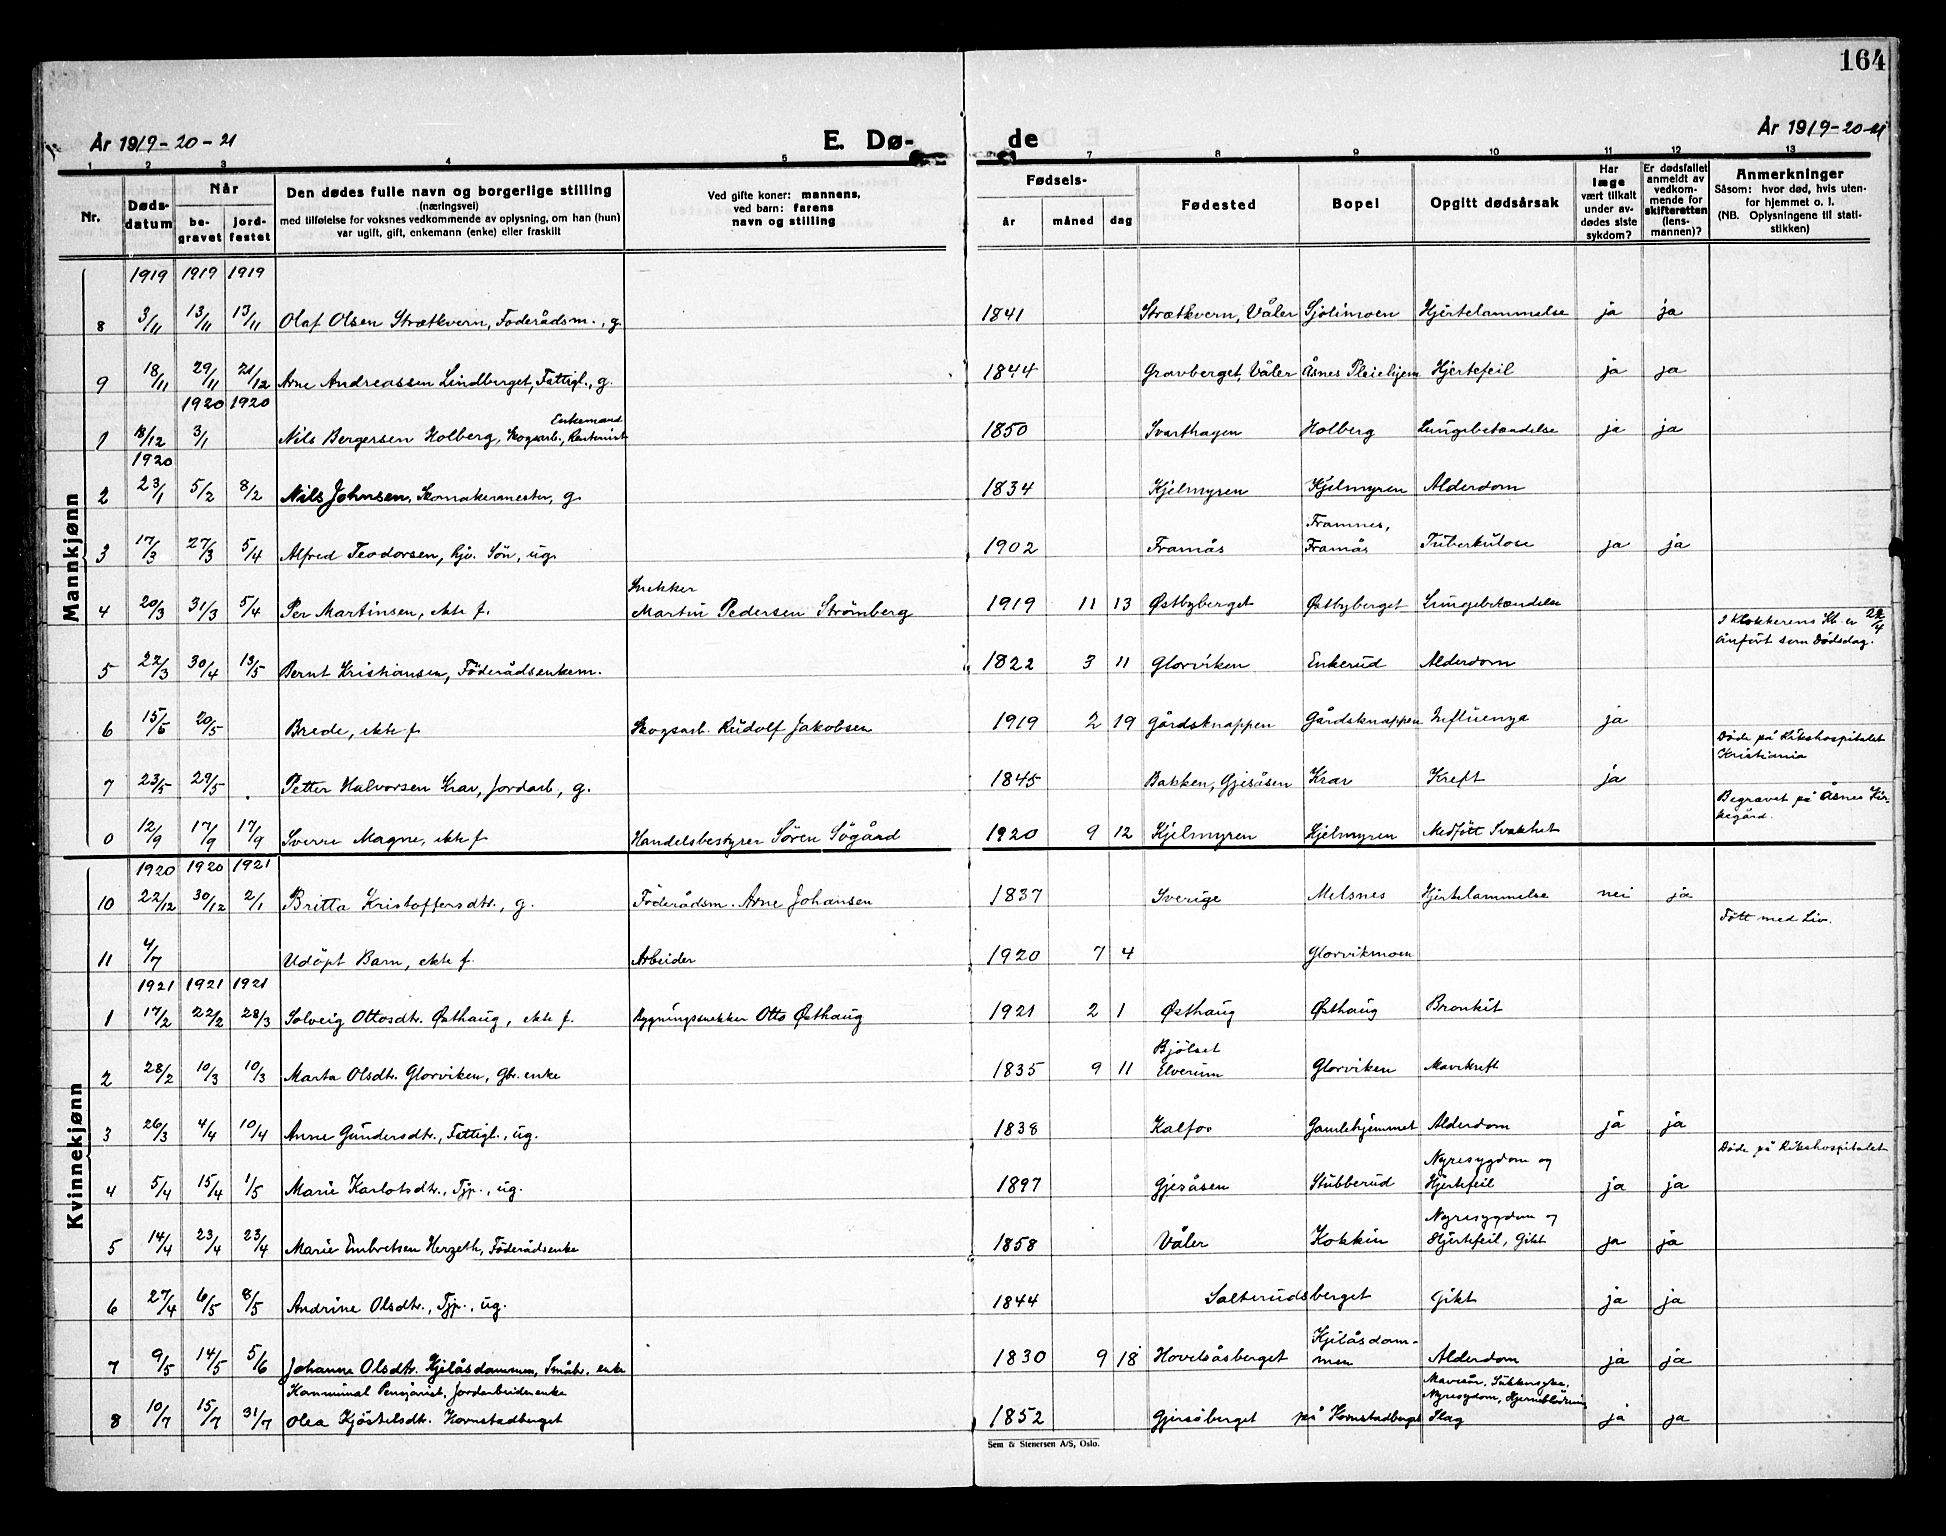 164
År 1919-20-21 E. Dø- de År 1919-20-21
1 2 3 4 5 7 8 9 10 11 12 13
Nr. Døds-datum Når be-gravet jord-festet Den dødes fulle navn og borgerlige stilling (næringsvei) med tilføielse for voksnes vedkommende av oplysning, om han (hun) var ugift, gift, enkemann (enke) eller fraskilt Ved gifte koner: mannens, ved barn: farens navn og stilling Fødsels- år måned dag Fødested Bopel Opgitt dødsårsak Har læge vært tilkalt under av-dødes siste sykdom? Er dødsfallet anmeldt av vedkom-mende for skifteretten (lens-mannen)? Anmerkninger Såsom: hvor død, hvis uten-for hjemmet o. l. (NB. Oplysningene til stati-stikken)
Mannkjønn
1919 1919 1919
8 3/11 13/11 13/11 Olaf Olsen Strætkvern, Foderådsm., g. 1841 Strætkvern, Våler Sjølimoen Hjertelammelse ja ja
9 18/11 29/11 21/12 Arne Andreassen Lindberget, Fattigl., g. 1844 Gravberget, Våler Åsnes Pleiehjem Hjertefeil ja ja
1920 1920
Enkemand
1 18/12 3/1 Nils Bergersen Holberg, Skogsarb., 1850 Svarthagen Holberg Lungebetændelse ja ja
1920
2 23/1 5/2 8/2 Nils Johnsen, Skomakermester, g. 1834 Kjelmyren Kjelmyren Alderdom
Framnes,
3 17/3 27/3 5/4 Alfred Teodorsen, Gjv. Søn, ug. 1902 Framås Framås Tuberkulose ja ja
Snekker
4 20/3 31/3 5/4 Per Martinsen, ekte f. Martin Pedersen Strømberg 1919 11 13 Østbyberget Østbyberget Lungebetændelse
I Klokkerens Kb. er 22/4
anført som Dødsdag.
5 22/3 30/4 13/5 Bernt Kristiansen, Föderådsenkem. 1822 3 11 Glorviken Enkerud Alderdom
6 15/5 20/5 Brede, ekte f. Skogsarb. Rudolf Jakobsen 1919 2 19 Gårdsknappen Gårdsknappen Influenza ja
Døde på Rikshospitalet
Kristiania
7 23/5 29/5 Petter Halvorsen Krav, Jordarb., g. 1845 Bakken, Gjesåsen Krav Kreft ja
Begravet på Åsnes Kir-
kegård.
0 12/9 17/9 17/9 Sverre Magne, ekte f. Handelsbestyrer Sören Sögård 1920 9 12 Kjelmyren Kjelmyren Medfött Svakhet
Kvinnekjønn
1920 1920 1921
10 22/12 30/12 2/1 Britta Kristoffersdtr., g. Föderådsm. Arne Johansen 1837 Sverige Melsnes Hjertelammelse nei ja
Född med Liv.
11 4/7 Udöpt Barn, ekte f. Arbeider 1920 7 4 Glorvikmoen
1921 1921 1921
1 17/2 22/2 28/3 Solveig Ottosdtr. Østhaug, ekte f. Bygningssnekker Otto Østhaug 1921 2 1 Østhaug Østhaug Bronkit
Bjölset
2 28/2 10/3 10/3 Marta Olsdtr. Glorviken, Gbr. enke 1835 9 11 Elverum Glorviken Mavekreft
3 26/3 4/4 10/4 Anne Gundersdtr., Fattigl., ug. 1838 Kalfos Gamlehjemmet Alderdom ja ja
Døde på Rikshospitalet
Nyresygdom og
4 5/4 15/4 1/5 Marie Karlotsdtr., Tjp., ug. 1897 Gjesåsen Stubberud Hjertefeil ja ja
Nyresygdom og
5 14/4 23/4 23/4 Marie Embretsen Hergeth, Föderådsenke 1858 Våler Kokkin Hjertefeil, Gikt ja ja
6 27/4 6/5 8/5 Andrine Olsdtr., Tjp., ug. 1844 Salterudsberget Gikt ja ja
Kjelåsdam-
7 9/5 14/5 5/6 Johanne Olsdtr. Kjelåsdammen, Småbr. enke 1830 9 18 Hovelsåsberget men Alderdom ja ja
Kommunal Pensjonist, Jordarbeiderenke Mavesår, Sukkersyke,
Nyresygdom, Hjerneblödning
8 10/7 15/7 31/7 Olea Kjöstelsdtr. Kornstadberget 1852 Gjersöberget på Kornstadberget Slag ja ja
Sem & Stenersen A/S, Oslo.